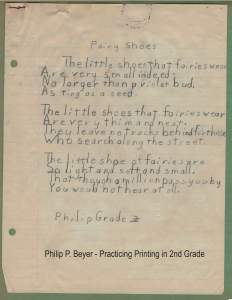 Fairy Shoes
The little shoes that fairies wear
Are very small indeed;
No larger than a violet bud,
As tiny as a seed.
The little shoes that fairies wear
Are very thim and neat.
They leave no tracks behind for those
Who search along the street.
The little shoe of fairies are
So light and soft and small.
That though a million pass you by
You would not hear at all.
Philip Grade 2
Philip P. Beyer - Practicing Printing in 2nd Grade